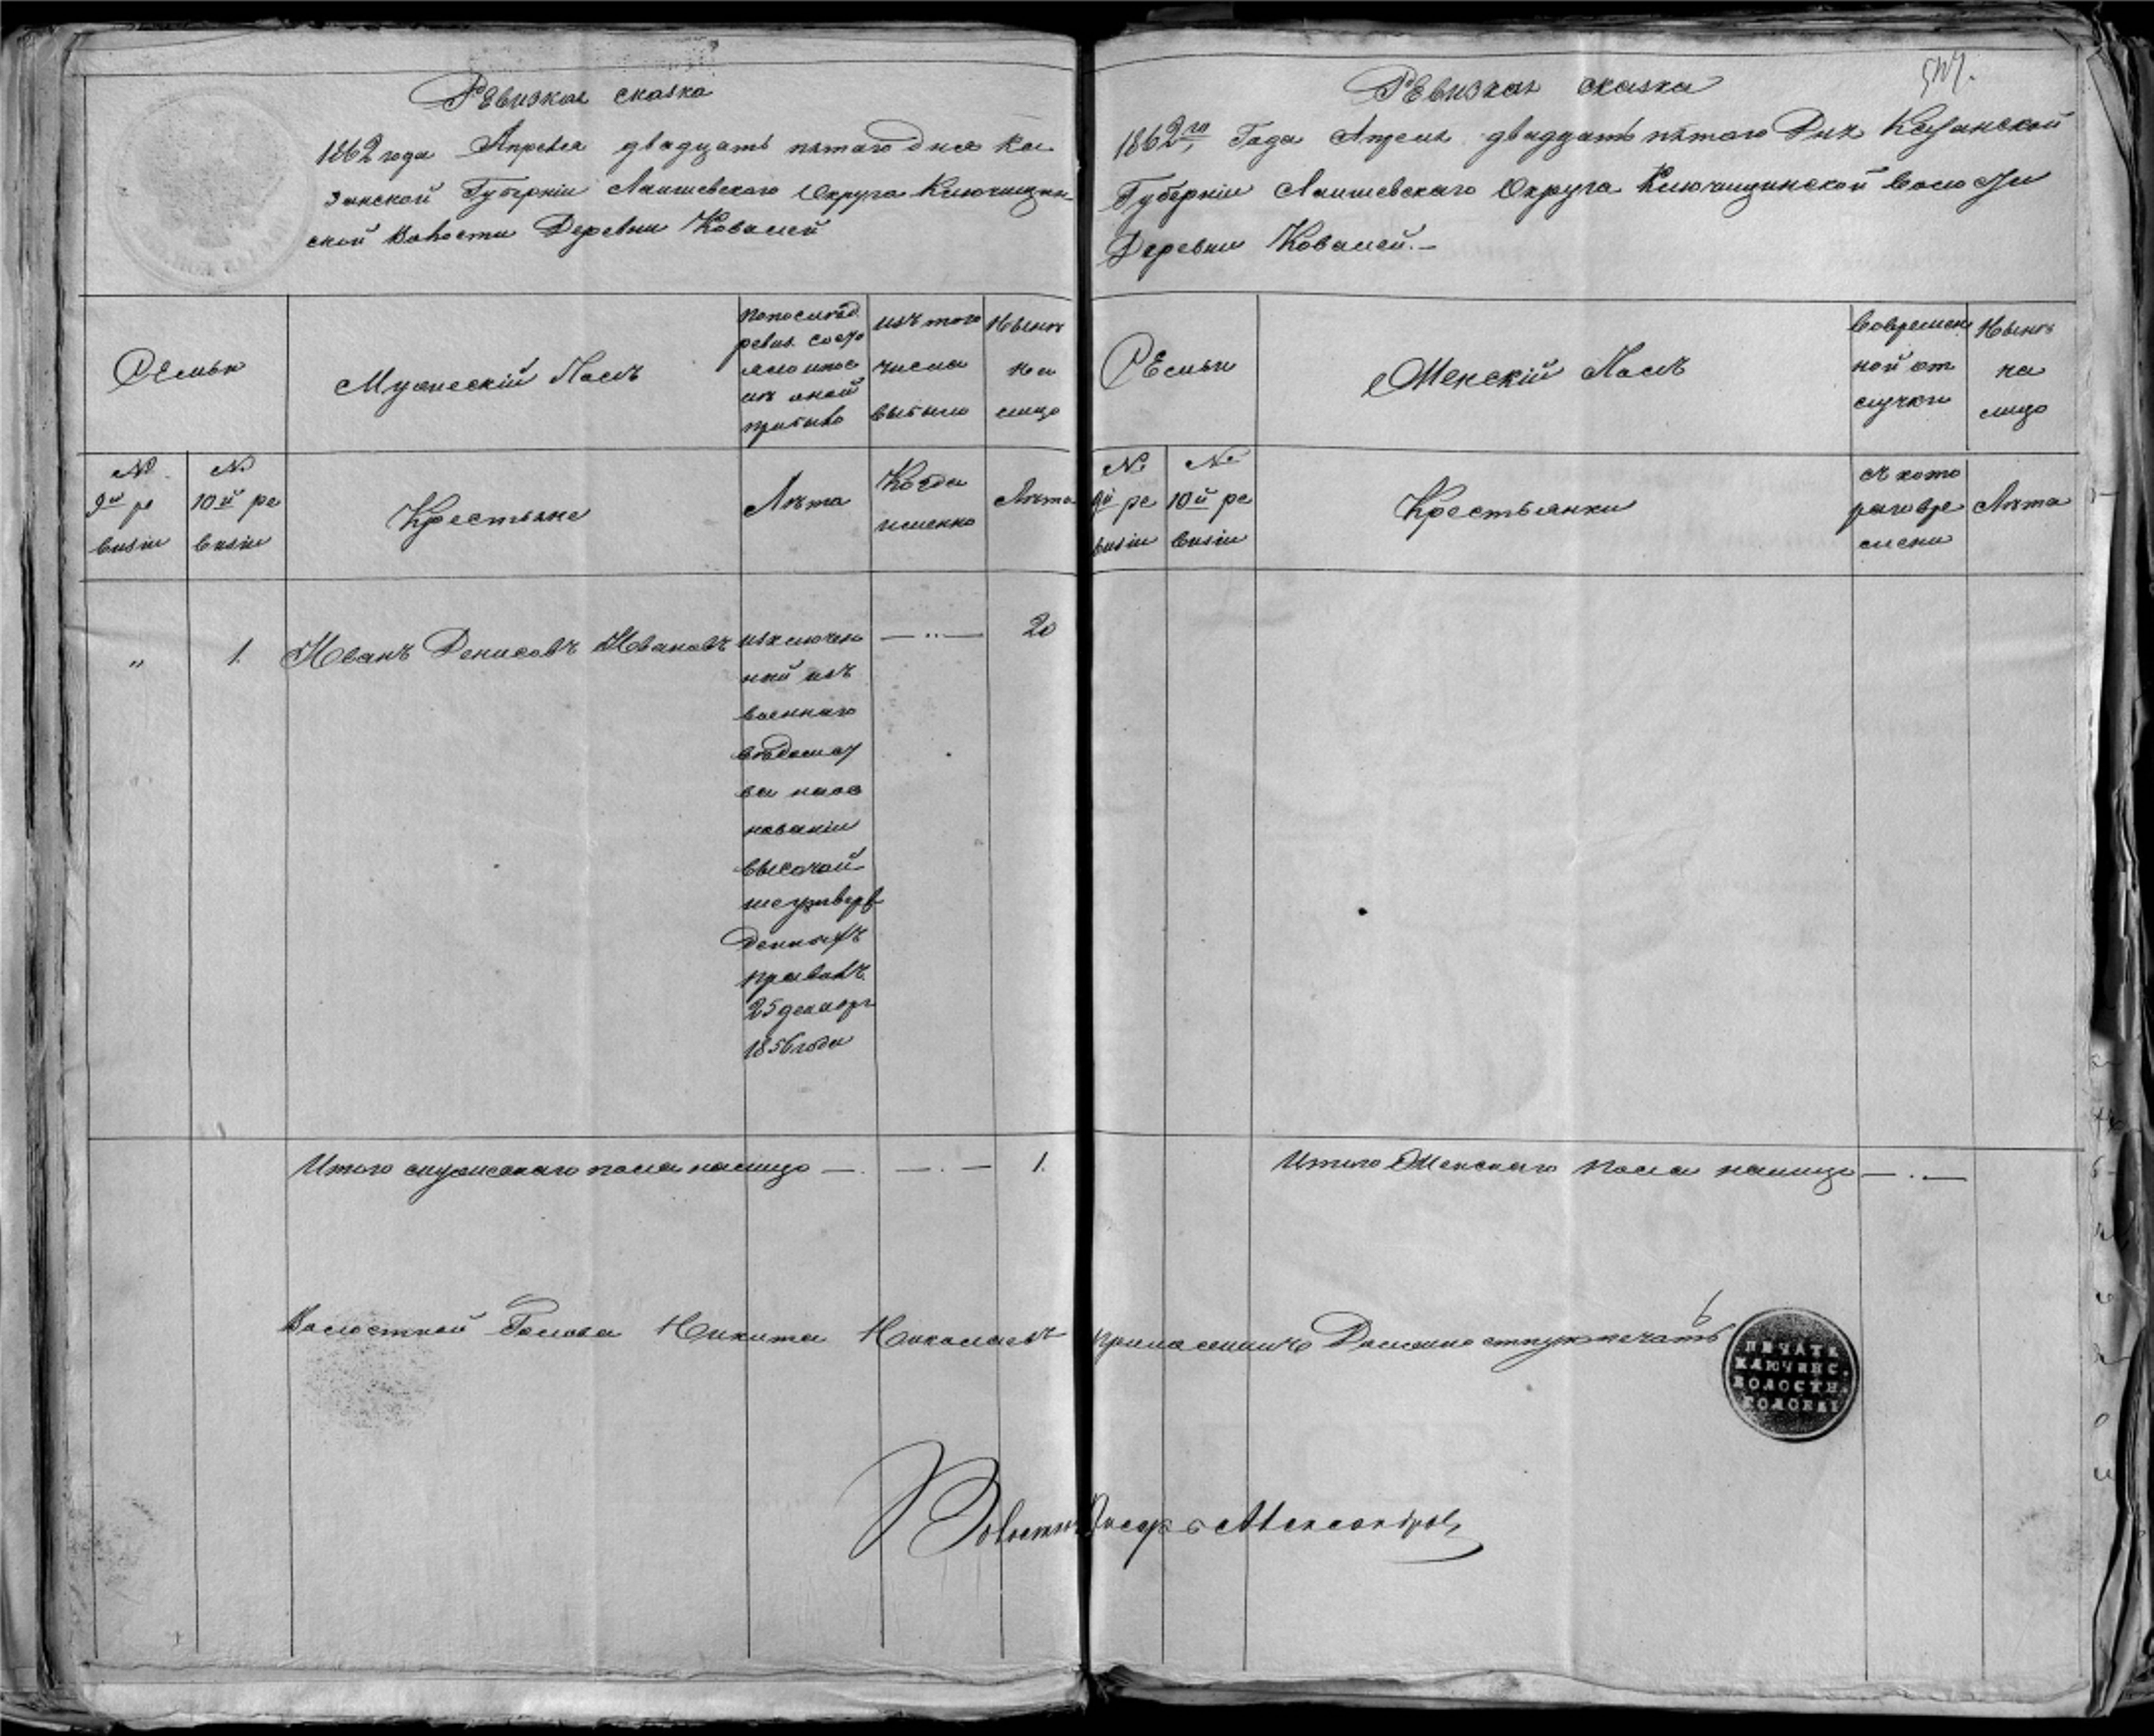 Ревизкая сказка
1862 года Апреля двадцать пятаго дня Ка
занской Губерніи Лаишевскаго Округа Ключищин
ской Волости Деревни Ковалей
Семьи
Мужескій Полъ
попослѣд.
ревиз. состо
яло
оной
прибыло
изъ того
числа
выбыло
Нынѣ
на
лицо
№
9й ре
визіи
№
10й ре
визіи
Крестьяне
Лѣта
Когда
именно
Лѣта
„
1.
Иванъ Денисовъ Ивановъ
изключен
ной изъ
военнаго
вѣдомст
ва наос
нованіи
высочай
ше утверж
денныхъ
правилъ
25 декабря
1856 года
20
Итого мужескаго пола налицо
1.
Ревизкая сказка
1862го Года Апреля двадцать пятаго Дня Казанской
Губерніи Лаишевскаго Округа Ключищинской Волости
Деревни Ковалей.
Семьи
Женскій Полъ
Вовремен
ной от
лучки
Нынѣ
на
лицо
№
9й ре
визіи
№
10й ре
визіи
Крестьянки
съ кото
раго вре
мени
Лѣта
Итого Женскаго пола налицо
Волостной Голова Никита Николаевъ приложилъ Должностную печать
ПЕЧАТЬ
КЛЮЧИЩС.
ВОЛОСТН.
ГОЛОВЫ
Волостн Писарь Александров